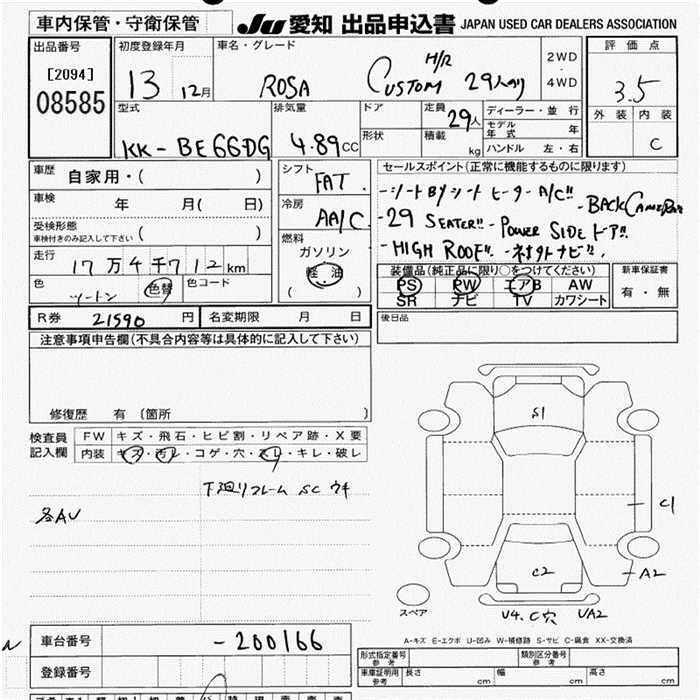 車内保管・守衛保管 JU 愛知 出品申込書 JAPAN USED CAR DEALERS ASSOCIATION
出品番号 初度登録年月 車名・グレード 2WD 評価点
[2094] 13 12月 ROSA CUSTOM H/R 29人のり 4WD 3.5
08585 型式 排気量 ドア 定員 29人 ディーラー・並行 外装 内装
モデル年式 年
KK-BE66DG 4.89CC 形状 積載 kg ハンドル 左・右 C
車歴 自家用・( ) シフト FAT セールスポイント(正常に機能するものに限ります)
車検 年 月( 日) 冷房 AA/C -シートBYシート ヒーターA/C!! -BACK CAMERA
受検形態 -29 SEATER!! -POWER SIDE ドア!!
車検付きのみ記入して下さい ( ) 燃料 -HIGH ROOF!!
走行 17万4千712km ガソリン 装備品(純正品に限り○をつけてください) 新車保証書
色 ツートン 色替 色コード 軽油 PS PW エアB AW 有・無
( ) SR ナビ TV カワシート
R券 21590円 名変期限 月 日 後日品
注意事項申告欄(不具合内容等は具体的に記入して下さい)
修復歴 有 [箇所 ]
検査員 FW キズ・飛石・ヒビ割・リペア跡・X要
記入欄 内装 キズ・汚レ・コゲ・穴・スレ・キレ・破レ
下廻りフレーム SC ウキ
各AU
S1
C1
C2
A2
スペア U4.C穴 UA2
A-キズ E-エクボ U-凹み W-補修跡 S-サビ C-腐食 XX-交換済
車台番号 -200166 形式指定番号 参考 類別区分番号 参考
登録番号 車庫証明用 参考 長さ cm 幅 cm 高さ cm